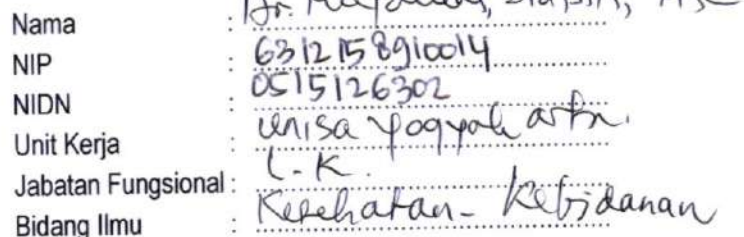 Nama : Dr.
NIP : 6312158910014
NIDN : 0515126302
Unit Kerja : Unisa Yogyakarta.
Jabatan Fungsional : L-K.
Bidang Ilmu : Kesehatan - Kebidanan